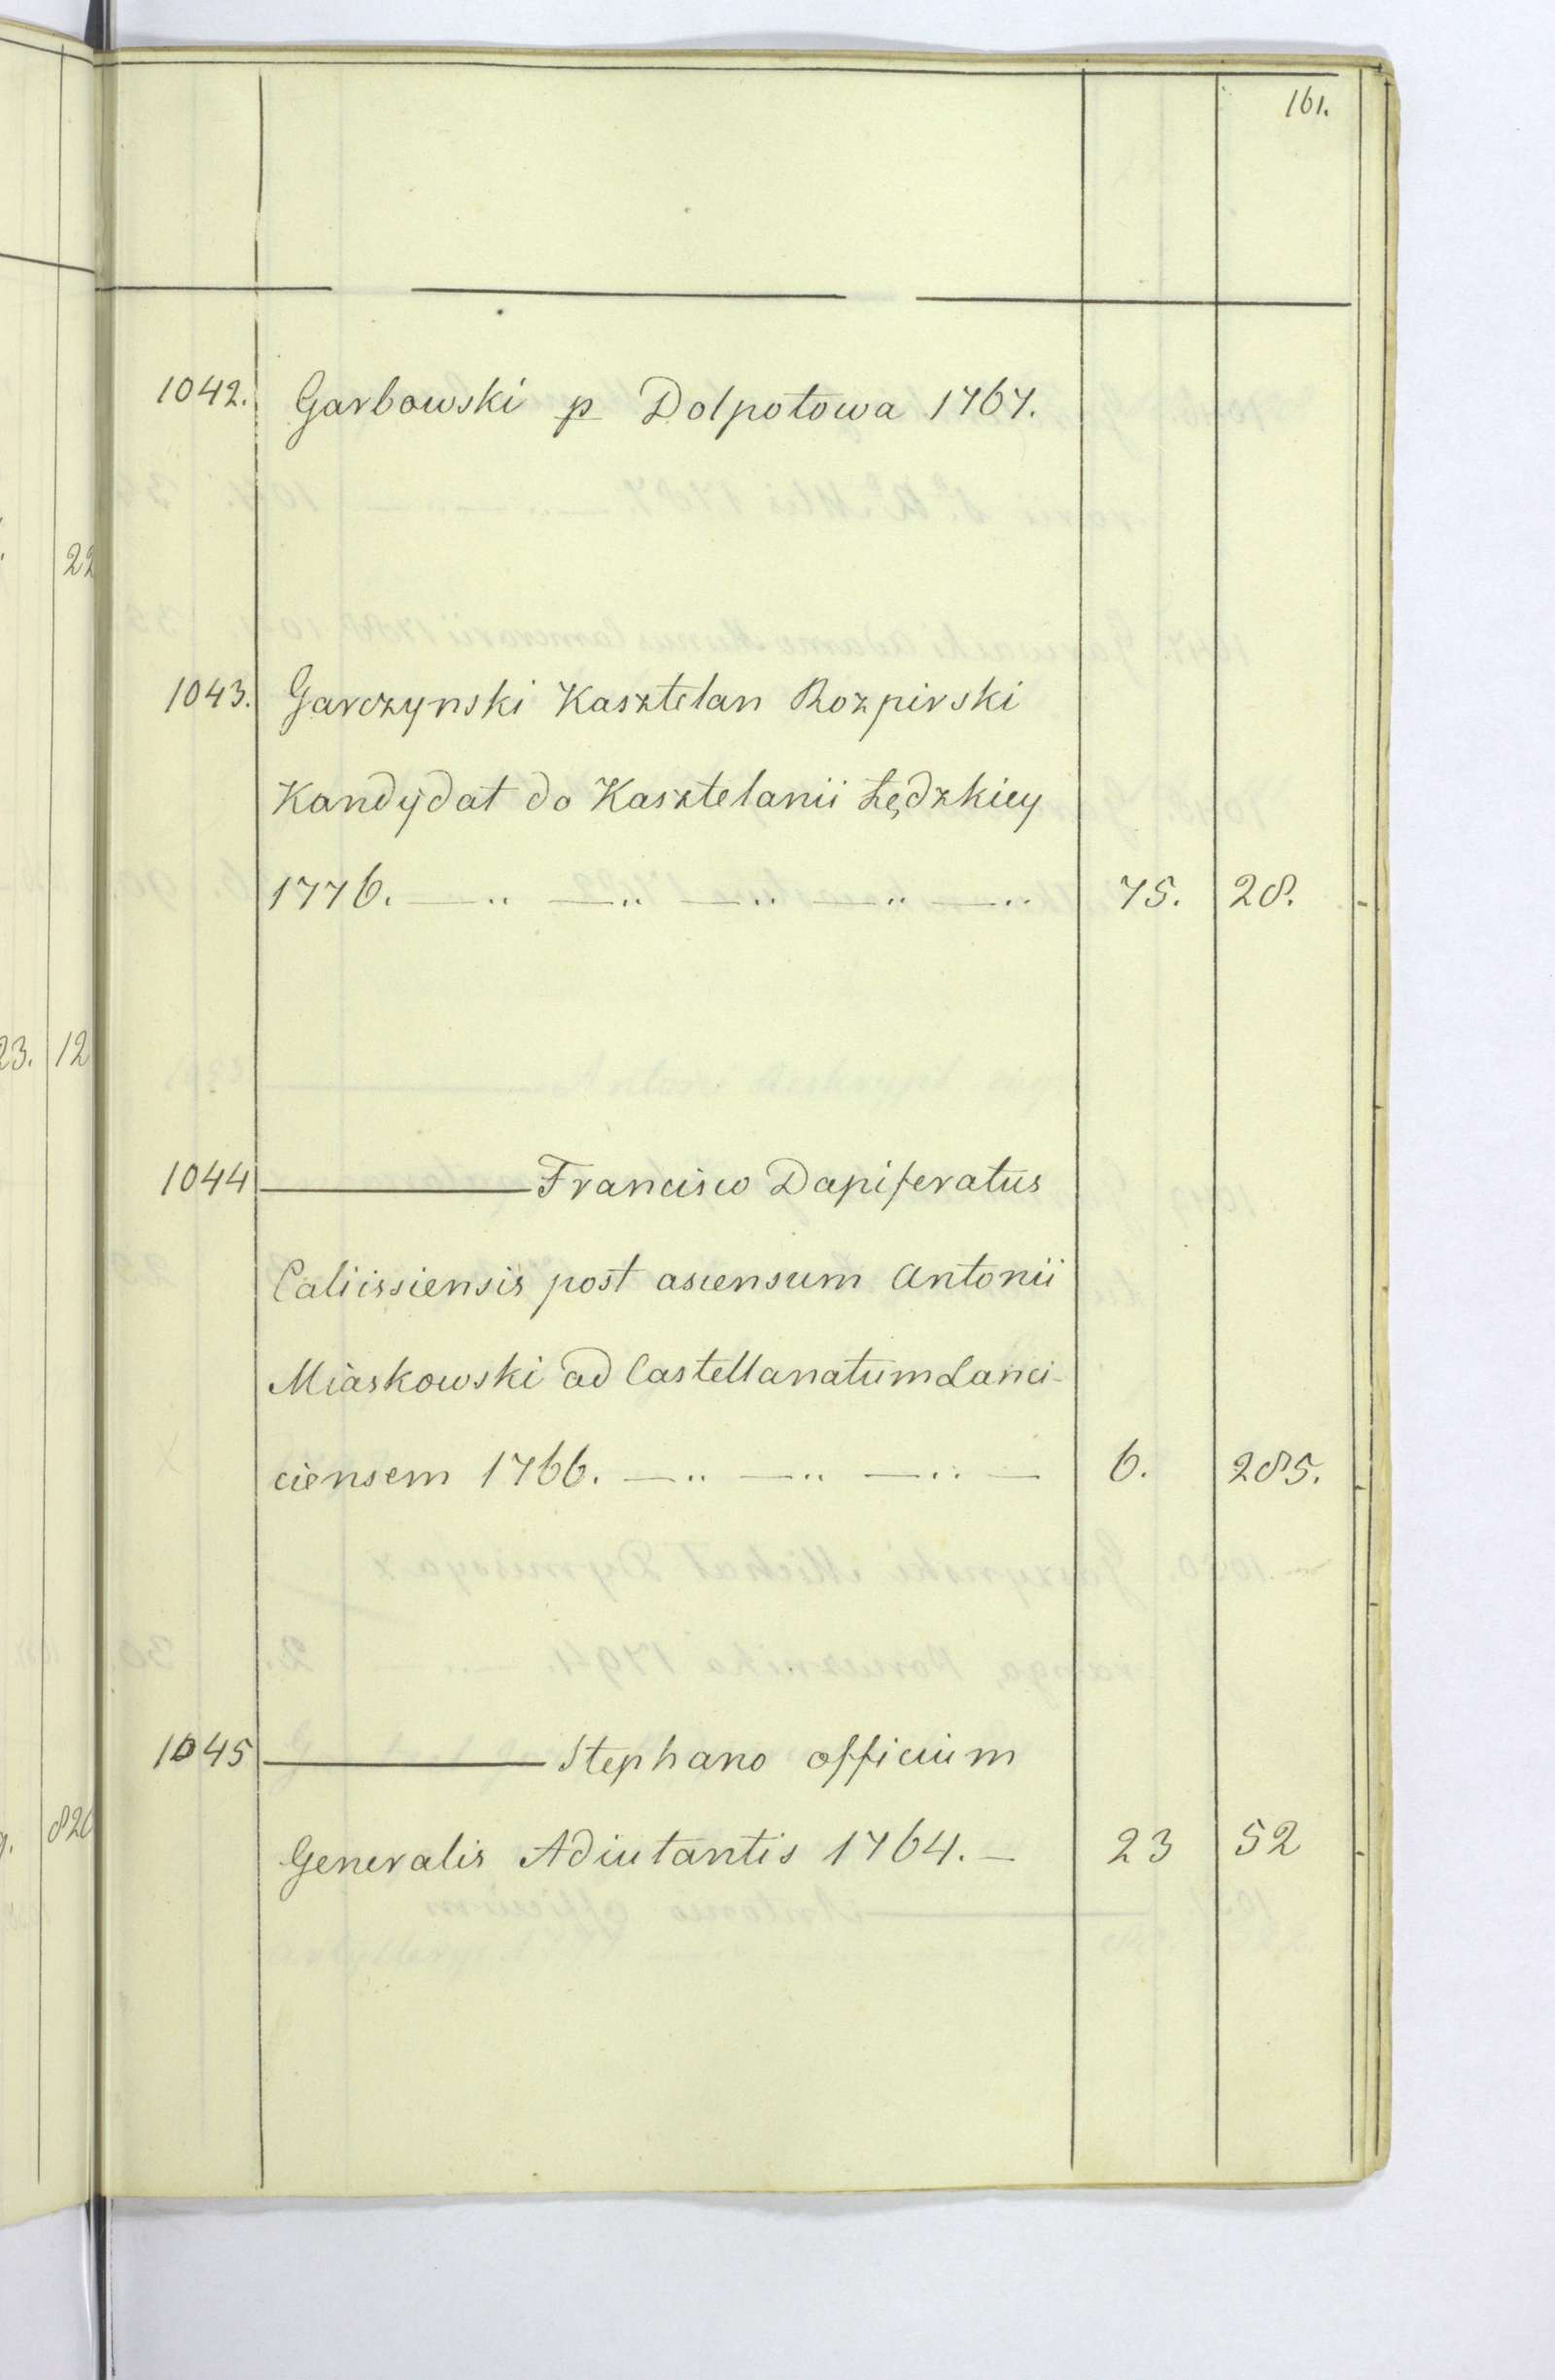 161.
1042. Garbowski p Dolpotowa 1767.
1043. Garczynski Kasztelan Rozpirski
Kandydat do Kasztelanii Łędzkiey
1776. —.. —.. —.. —.. —.. 75. 28.
1044 ——— Francisco Dapiferatus
Caliissiensis post ascensum Antonii
Miaskowski ad Castellanatum Lanci-
ciensem 1766. —.. —.. —.. — 6. 285.
1045 ——— Stephano officium
Generalis Adiutantis 1764. — 23 52
22
23. 12
820